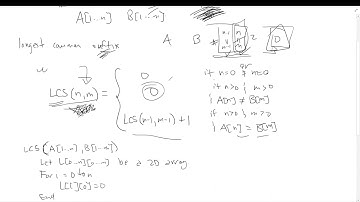 A[1...n] B[1...n]
longest common suffix A B
LCS(n,m) = { 0 if n=0 or m=0
0 if n>0 & m>0
& A[n] ≠ B[m]
LCS(n-1,m-1)+1 if n>0 & m>0
& A[n] = B[m]
LCS(A[1...n], B[1...n])
Let L[0...n][0...n] be a 2D array
For i = 0 to n
L[i][0]=0
End